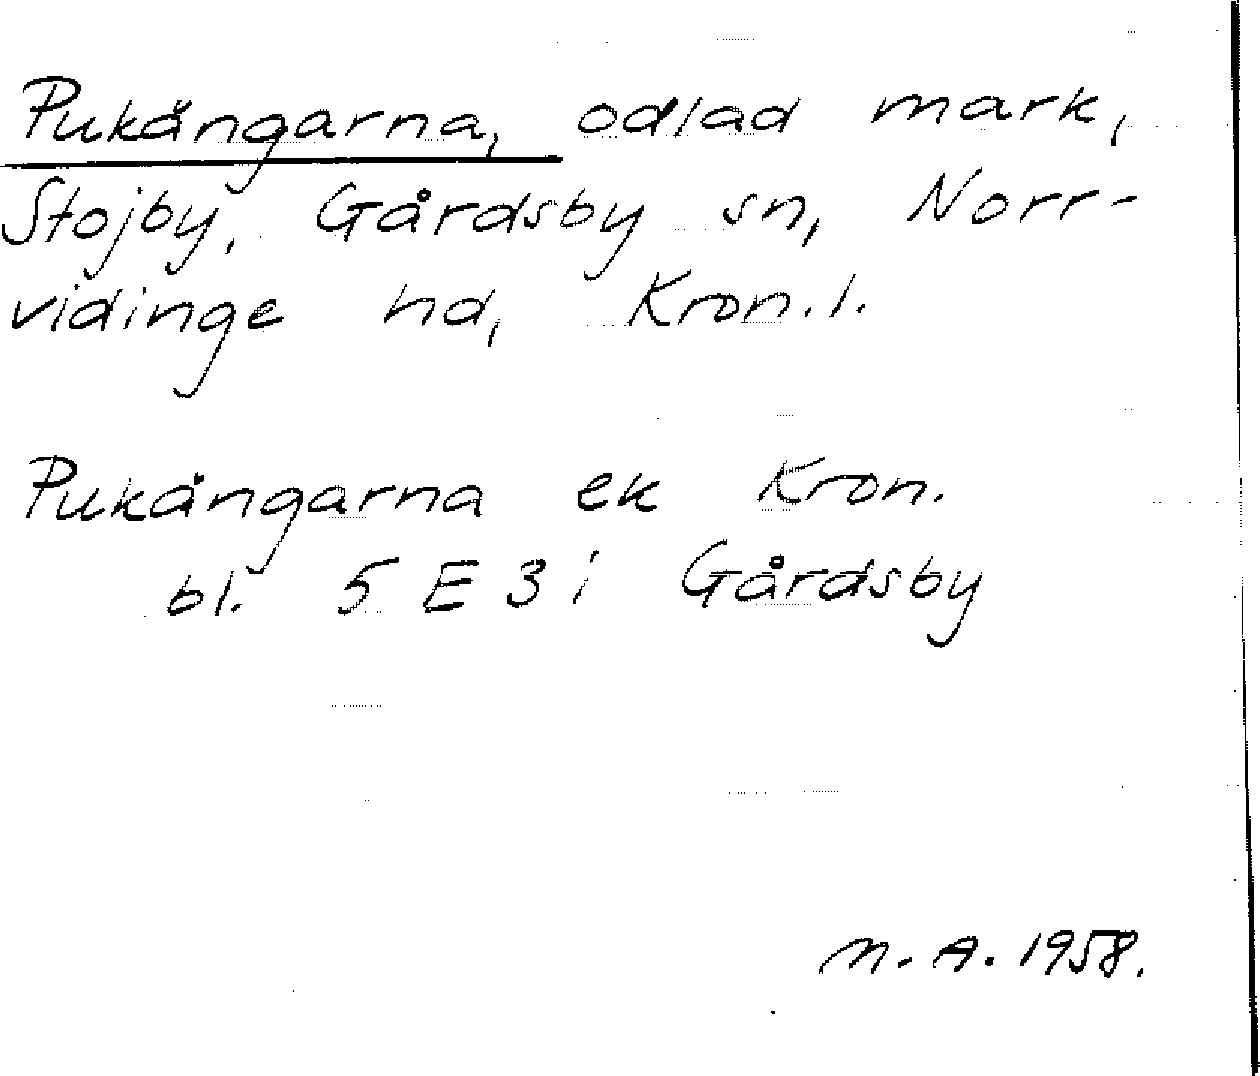 Pukängarna, odlad mark,
Stojby, Gårdsby sn, Norr-
vidinge hd, Kron. l.
Pukängarna ek Kron.
bl. 5 E 3 i Gårdsby
M. A. 1958.